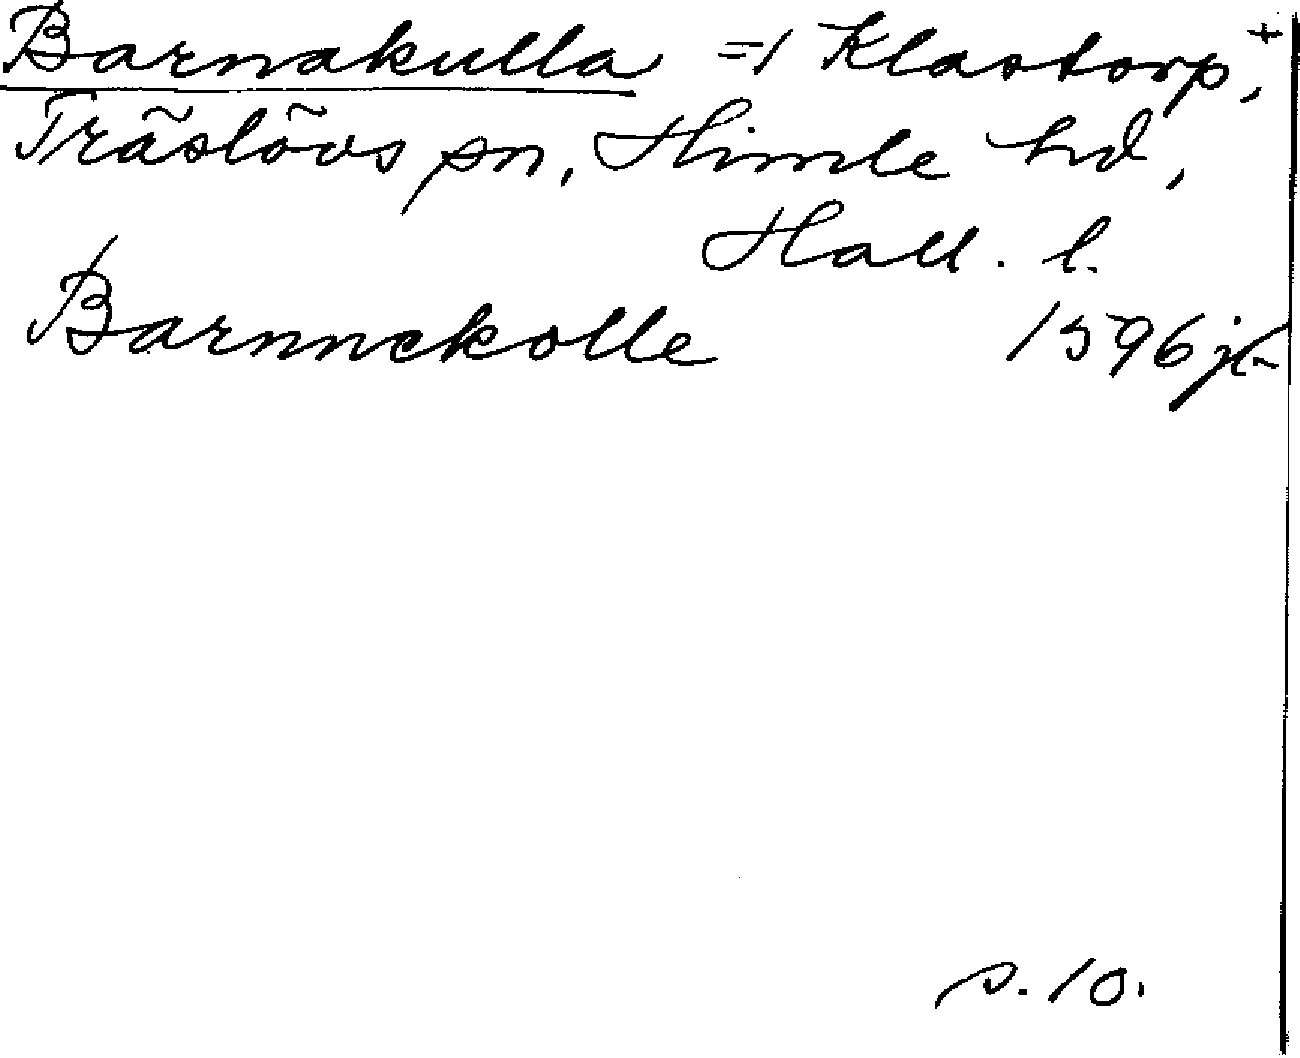 Barnakulla =1 Klastorp, +
Träslövs sn, Himle hd,
Hall. l.
Barnnekolle 1596 jb
s. 10.